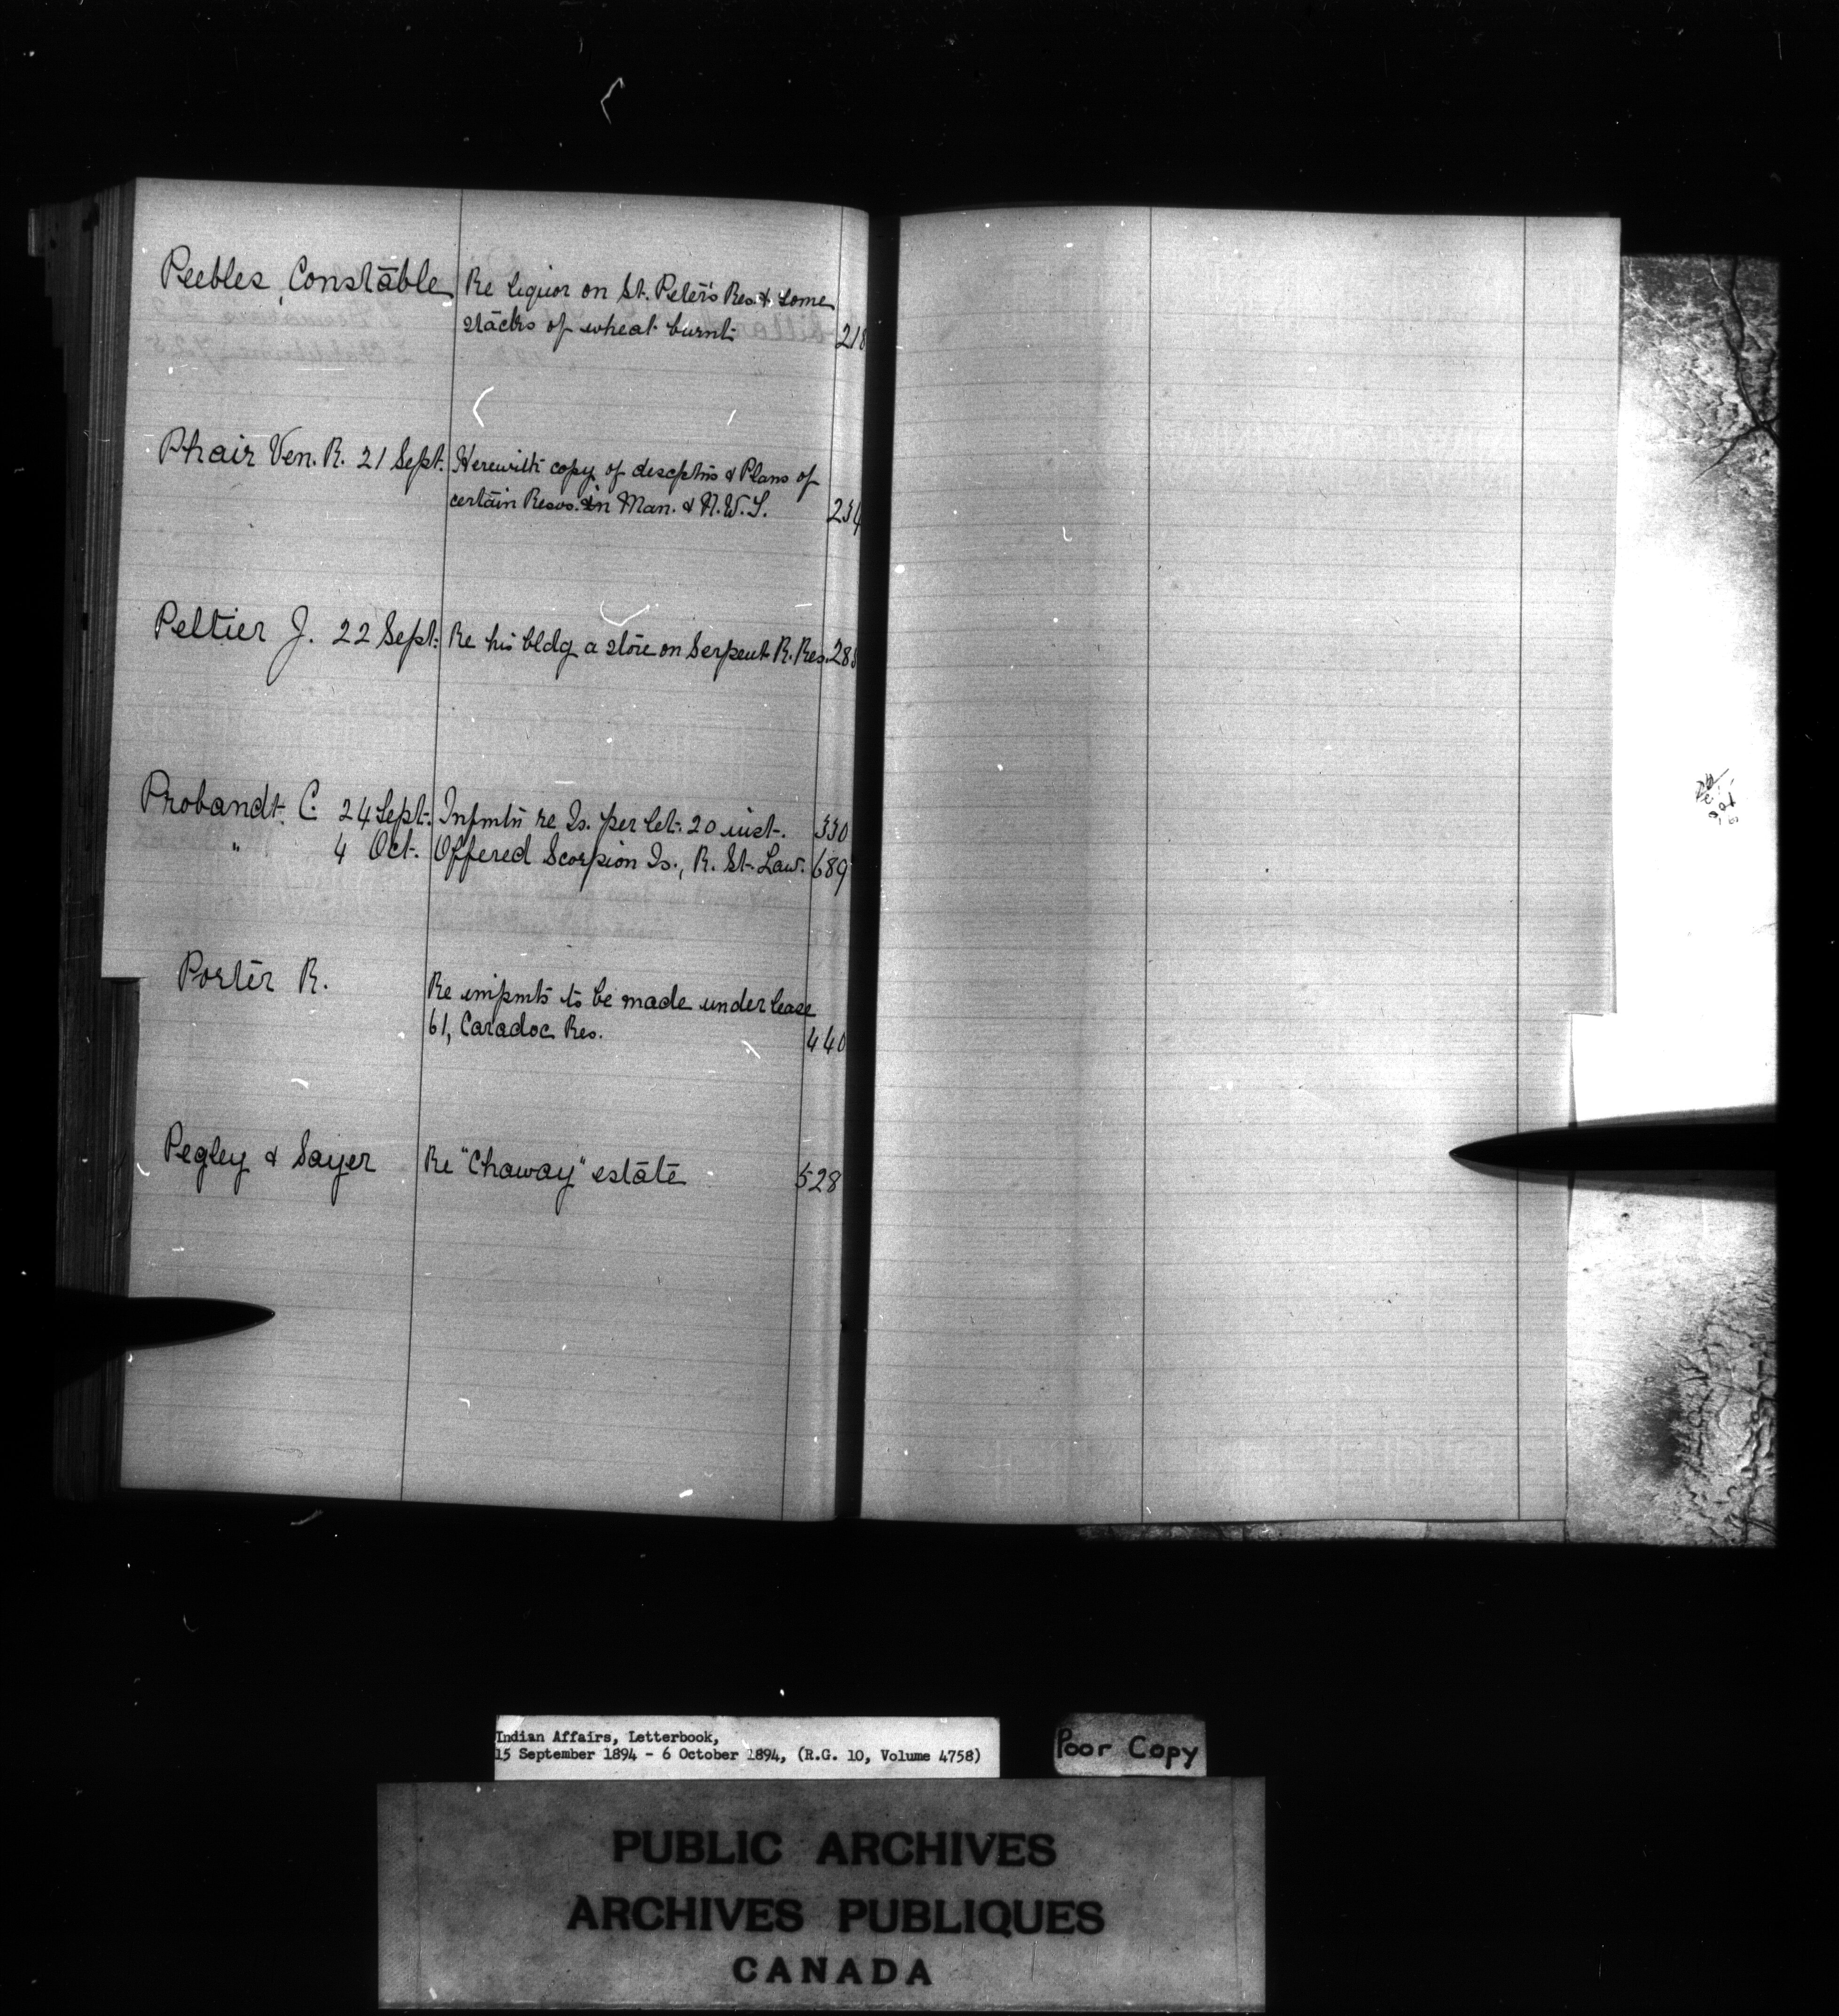 Peebles, Constable Re liquor on St. Peter's Res. & some
stacks of wheat burnt 218
Phair Ven. R. 21 Sept. Herewith copy of descptns & Plans of
certain Resvs. in Man. & N.W.T. 234
Peltier J. 22 Sept. Re his bldg a store on Serpent R. Res. 28
Probandt C. 24 Sept. Infmtn re Is. per let. 20 inst. 330
" 4 Oct. Offered Scorpion Is., R. St. Law. 689
Porter R. Re impmts to be made under lease
61, Caradoc Res. 440
Pegley & Sayer Re "Chaway" estate 528
Indian Affairs, Letterbook,
15 September 1894 - 6 October 1894, (R.G. 10, Volume 4758)
Poor Copy
PUBLIC ARCHIVES
ARCHIVES PUBLIQUES
CANADA